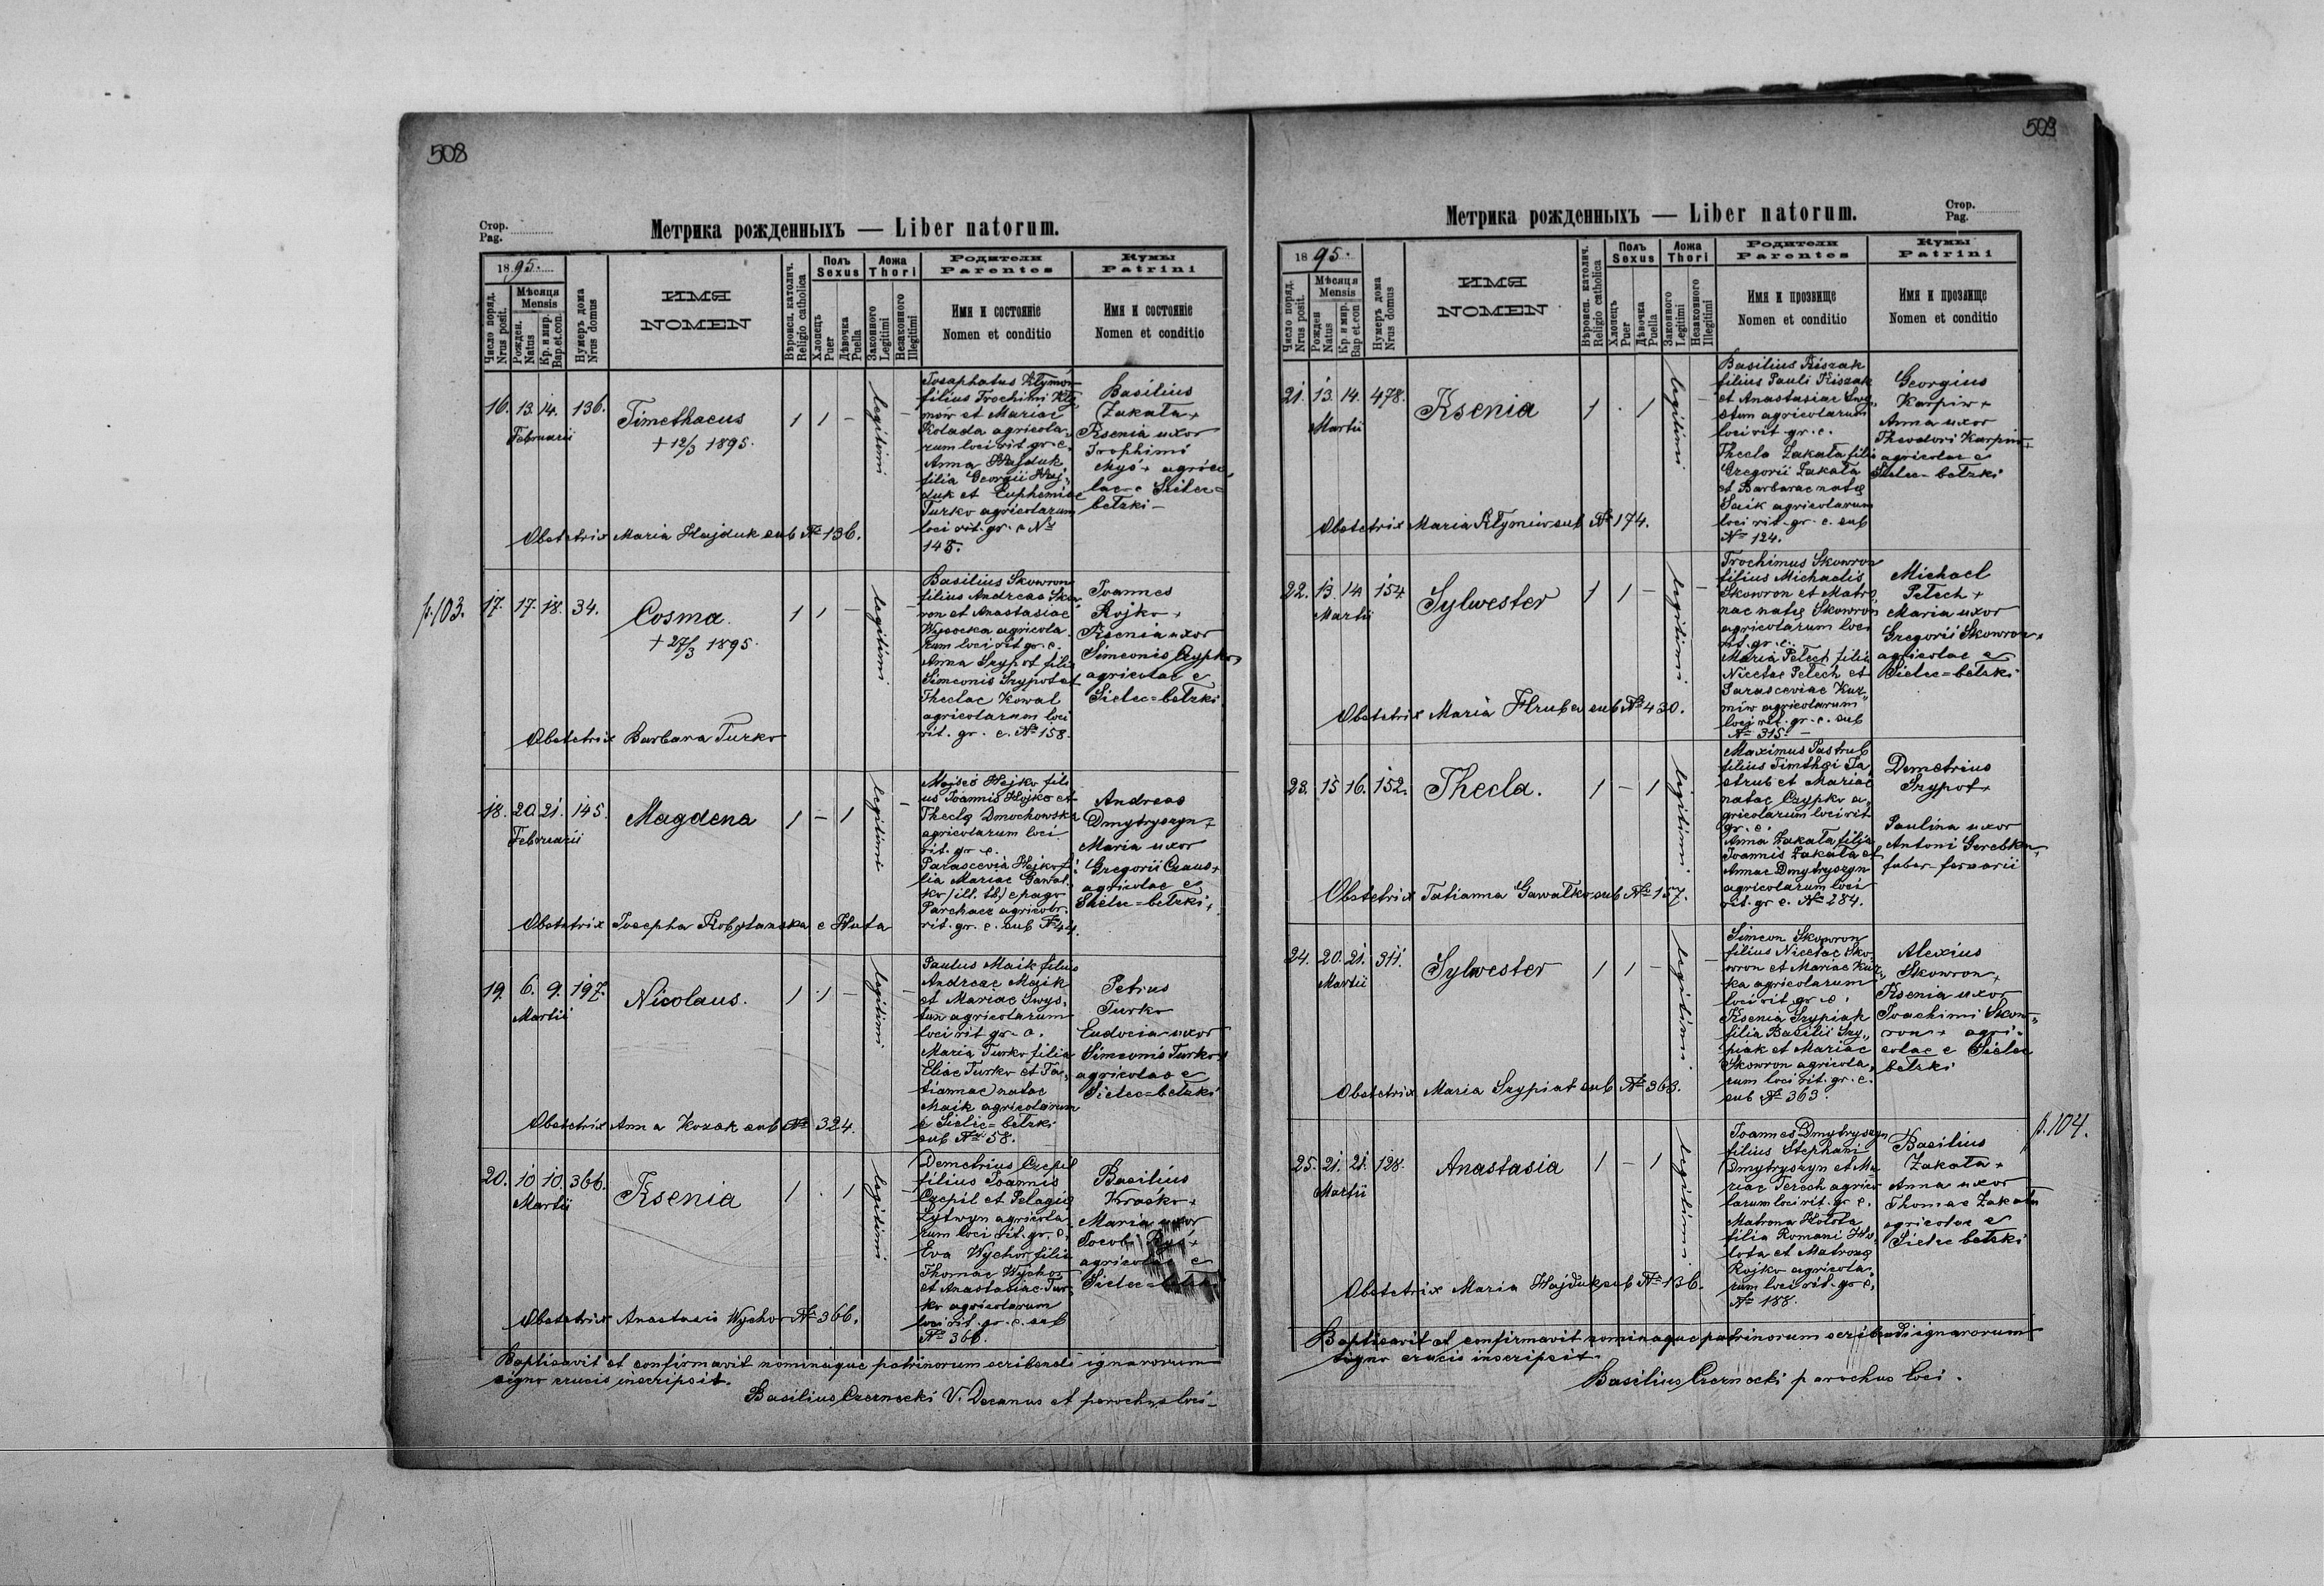 508
Стор.
Pag.
Метрика рожденныхъ — Liber natorum.
1895.
Число поряд.
Nrus posit.
Мѣсяця
Mensis
Рожден.
Natus
Кр. и мир.
Bap.et.con.
Нумеръ дома
Nrus domus
ИМЯ
NOMEN
Вѣроисп. католич.
Religio catholica
Полъ
Sexus
Хлопецъ
Puer
Дѣвочка
Puella
Ложа
Thori
Законного
Legitimi
Незаконного
Illegitimi
Родители
Parentes
Имя и состояніе
Nomen et conditio
Кумы
Patrini
Имя и состояніе
Nomen et conditio
16. 13. 14. 136.
Februarii
Timothaeus
+ 12/3 1895.
1 1 –
legitimi
Josaphatus Klymów
filius Trochimi Kly„
mów et Mariae
Kolada agricola„
rum loci rit. gr. c.
Anna Hajduk
filia Georgii Haj„
duk et Euphemiae
Turko agricolarum
loci rit. gr. c No
145.
Basilius
Zakała +
Ksenia uxor
Trophimi
Myś + agrico
lae e Sielec=
bełzki –
Obstetrix Maria Hajduk sub No 136.
p. 103.
17. 17. 18. 34.
Cosma.
+ 27/3 1895.
1 1 –
legitimi
Basilius Skowron
filius Andreae Skow
ron et Anastasiae
Wysocka agricola
rum loci rit gr. c.
Anna Szypot filia
Simeonis Szypot et
Theclae Kowal
agricolarum loci
rit. gr. c. No 158.
Joannes
Rojko +
Ksenia uxor
Simeonis Czypko +
agricolae e
Sielec=bełzki
Obstetrix Barbara Turko
18. 20. 21. 145.
Februarii
Magdena
1 – 1
legitimi
Mojseó Hojko fili
us Joannis Hojko et
Theclę Dmochowska
agricolarum loci
rit. gr. c.
Parascevia Hojko fi
lia Mariae Gawał„
ko /ill. th./ e pago
Parchacz agricolr.
rit. gr. c. sub No 44.
Andreas
Dmytryszyn +
Maria uxor
Gregorii Czaus +
agricolae e
Sielec=bełzki +
Obstetrix Josepha Kobylanska e Huta
19. 6. 9. 197.
Martii
Nicolaus.
1 1 –
legitimi
Paulus Maik filius
Andreae Maik
et Mariae Swys„
tun agricolarum
loci rit gr. c.
Maria Turko filia
Eliae Turko et Ta„
tiannae natae
Maik agricolarum
e Sielec=bełzki
sub No 58.
Petrus
Turko
Eudocia uxor
Simeonis Turko +
agricolae e
Sielec=bełzki
Obstetrix Anna Kozak sub No 324.
20. 10. 10. 366.
Martii
Ksenia
1 . 1
legitimi
Demetrius Czepil
filius Joannis
Czepil et Pelagię
Łytwyn agricola
rum loci rit. gr. c.
Eva Wychor filia
Thomae Wychor
et Anastasiae Tur„
ko agricolarum
loci rit. gr. c. sub
No 366.
Basilius
Hraśko +
Maria uxor
Jacobi
agricolae e
Sielec=bełzki
Obstetrix Anastasia Wychor No 366.
Baptisavit et confirmavit nominaque patrinorum scribendi ignarorum
signo crucis inscripsit.
Basilius Czernecki V. Decanus et parochus loci –
509
Стор.
Pag.
Метрика рожденныхъ — Liber natorum.
1895.
Число поряд.
Nrus posit.
Мѣсяця
Mensis
Рожден
Natus
Кр. и мир.
Bap et.con
Нумеръ дома
Nrus domus
ИМЯ
NOMEN
Вѣроисп. католич.
Religio catholica
Полъ
Sexus
Хлопецъ
Puer
Дѣвочка
Puella
Ложа
Thori
Законного
Legitimi
Незаконного
Illegitimi
Родители
Parentes
Имя и прозвище
Nomen et conditio
Кумы
Patrini
Имя и прозвище
Nomen et conditio
21. 13. 14. 478.
Martii
Ksenia
1 . 1
legitimi
Basilius Kiszak
filius Pauli Kiszak
et Anastasiae Swy„
stun agricolarum
loci rit. gr. c.
Thecla Zakała filia
Gregorii Zakała
et Barbarae natę
Saik agricolarum
loci rit. gr. c. sub
No 124.
Georgius
Karpiw +
Anna uxor
Theodori Karpiw +
agricolae e
Sielec-bełzki
Obstetrix Maria Kłymiw sub No 174.
22. 13. 14. 154
Martii
Sylwester
1 1 –
legitimi
Trochimus Skowron
filius Michaelis
Skowron et Matro„
nae natę Skowron
agricolarum loci
rit. gr. c.
Maria Pełech filia
Nicetae Pełech et
Parasceviae Kuz„
miw agricolarum
loci rit. gr. c. sub
No 315. –
Michael
Pełech +
Maria uxor
Gregorii Skowron +
agricolae e
Sielec=bełzki
Obstetrix Maria Hruba sub No 430.
23. 15 16. 152.
Thecla.
1 – 1
legitimi
Maximus Jastrub
filius Timthęi Ja„
strub et Mariae
natae Czypko a„
gricolarum loci rit
gr. c.
Anna Zakała filia
Joannis Zakała et
Annae Dmytryszyn
agricolarum loci
rit. gr c. No 284.
Demetrius
Szypot +
Paulina uxor
Antoni
faber-ferrarii
Obstetrix Tatianna Gawałko sub No 157.
24. 20. 21. 311.
Martii
Sylwester
1 1 –
legitimi
Simeon Skowron
filius Nicetae Sko„
wron et Mariae Kuz„
ka agricolarum
loci rit gr. c.
Ksenia Szypiak
filia Basilii Szy„
piak et Mariae
Skowron agricola„
rum loci rit. gr. c.
sub No 363.
Alexius
Skowron +
Ksenia uxor
Joachimi Skow„
ron + agri„
colae e Sielec
bełzki
Obstetrix Maria Szypiat sub No 363.
p. 104.
25. 21. 21. 128.
Martii
Anastasia
1 – 1
legitimi
Joannes Dmytryszyn
filius Stephani
Dmytryszyn et Ma„
riae Terech agrico
larum loci rit. gr c.
Matrona Hołota
filia Romani Ho„
łota et Matronę
Rojko agricola„
rum loci rit. gr c.
No 188.
Basilius
Zakała +
Anna uxor
Thomae Zakała
agricolae e
Sielec bełzki
Obstetrix Maria Hajduk sub No 136.
Baptisavit et confirmavit nominaque patrinorum scribendi ignarorum
signo crucis inscripsit.
Basilius Czernecki parochus loci.